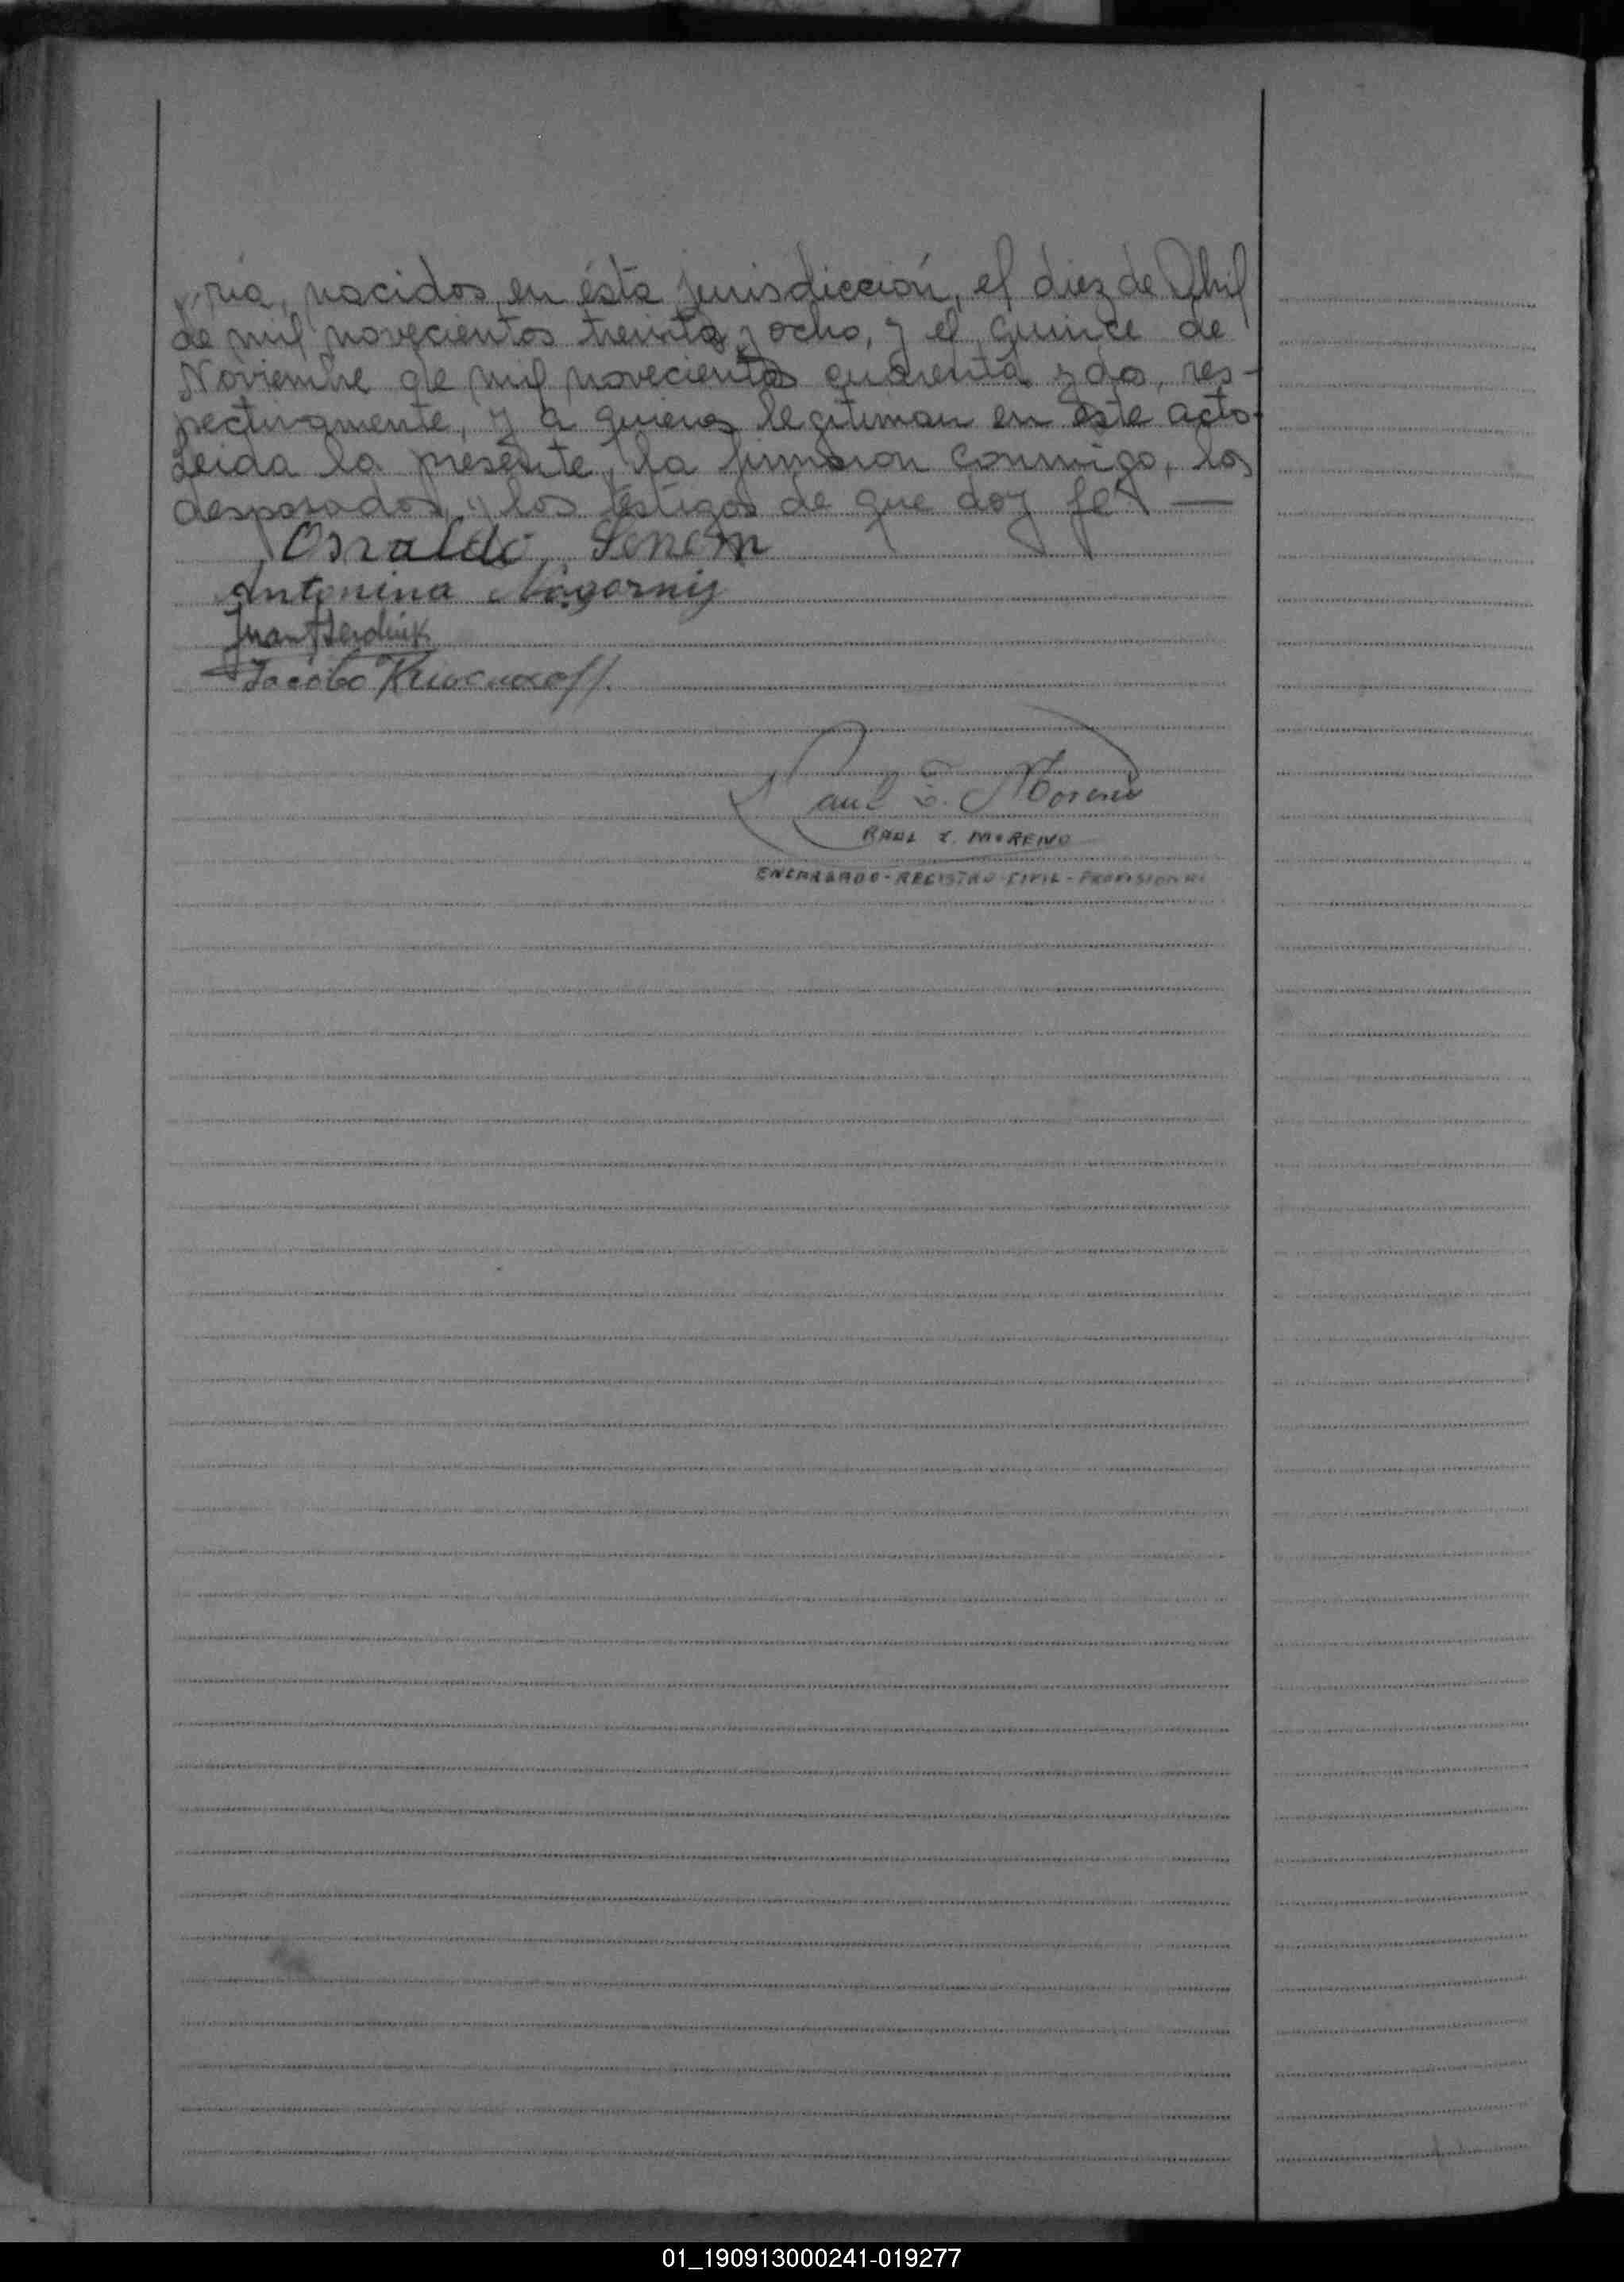 ria, nacidos en ésta jurisdicción, el diez de Abril
de mil novecientos treinta y ocho, y el quince de
Noviembre de mil novecientos cuarenta y dos, res-
pectivamente, y a quienes legitiman en éste acto.
Leida la presente, la firmaron conmigo, los
desposados, y los testigos de que doy fe. —
Osvaldo
Antonina Nagorniy
Juan
Jacobo
Raul E. Moreno
RAUL E. MORENO
ENCARGADO-REGISTRO CIVIL-PROVISIONAL
01_190913000241-019277